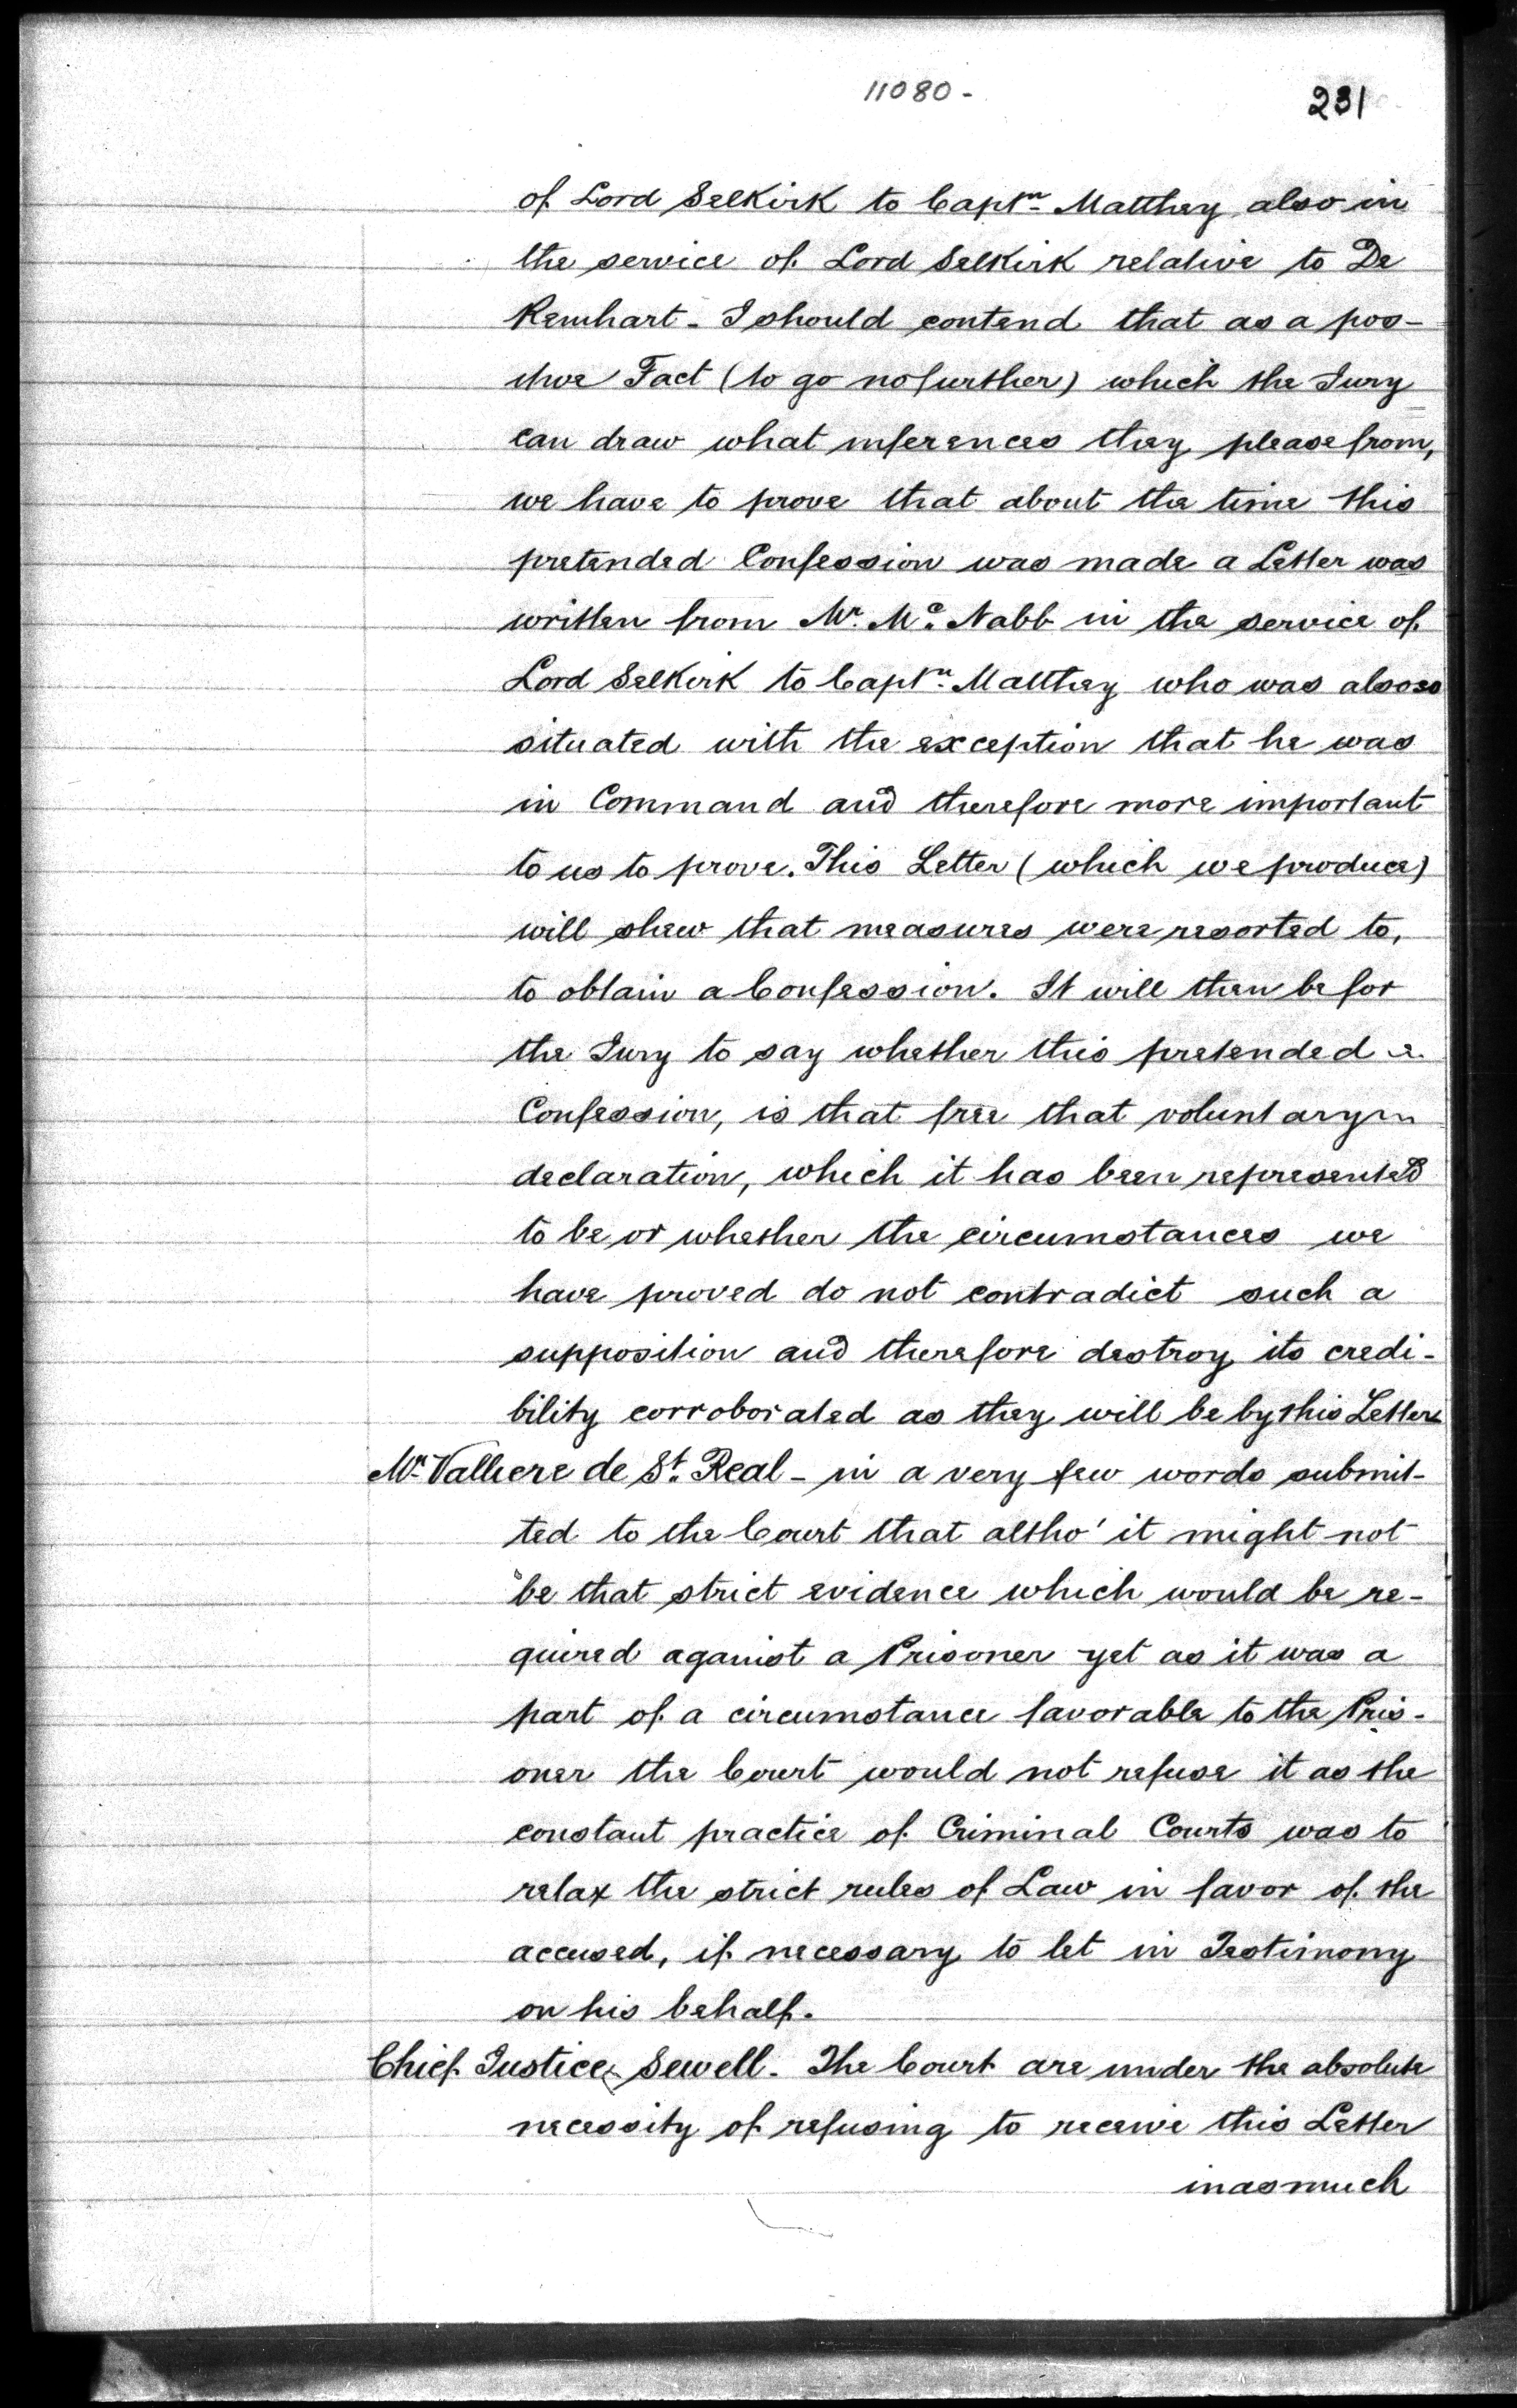 11080 -
231
of Lord Selkirk to Captn. Matthey also in
the service of Lord Selkirk relative to De
Reinhart - I should contend that as a pos-
itive Fact (to go no further) which the Jury
can draw what inferences they please from,
we have to prove that about the time this
pretended Confession was made a Letter was
written from Mr. Mc. Nabb in the service of
Lord Selkirk to Captn. Matthey who was also so
situated with the exception that he was
in Command and therefore more important
to us to prove. This Letter (which we produce)
will shew that measures were resorted to,
to obtain a Confession. It will then be for
the Jury to say whether this pretended
Confession, is that free that voluntary
declaration, which it has been represented
to be or whether the circumstances we
have proved do not contradict such a
supposition and therefore destroy its credi-
bility corroborated as they will be by this Letter
Mr. Valliere de St. Real - in a very few words submit-
ted to the Court that altho' it might not
be that strict evidence which would be re-
quired against a Prisoner yet as it was a
part of a circumstance favorable to the Pris-
oner the Court would not refuse it as the
constant practice of Criminal Courts was to
relax the strict rules of Law in favor of the
accused, if necessary to let in Testimony
on his behalf.
Chief Justice Sewell. The Court are under the absolute
necessity of refusing to receive this Letter
inasmuch